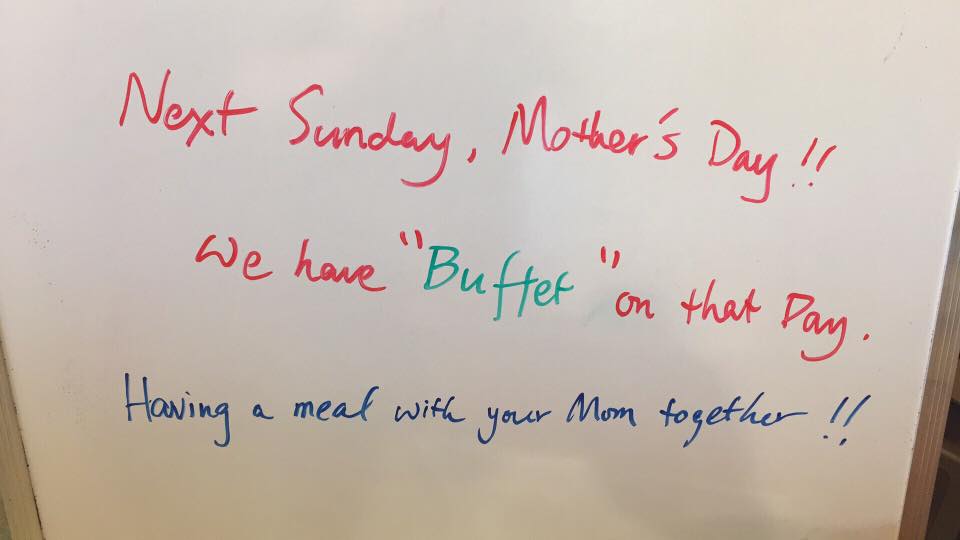 Next Sunday, Mother's Day !!
We have "Buffet" on that Day.
Having a meal with your Mom together !!